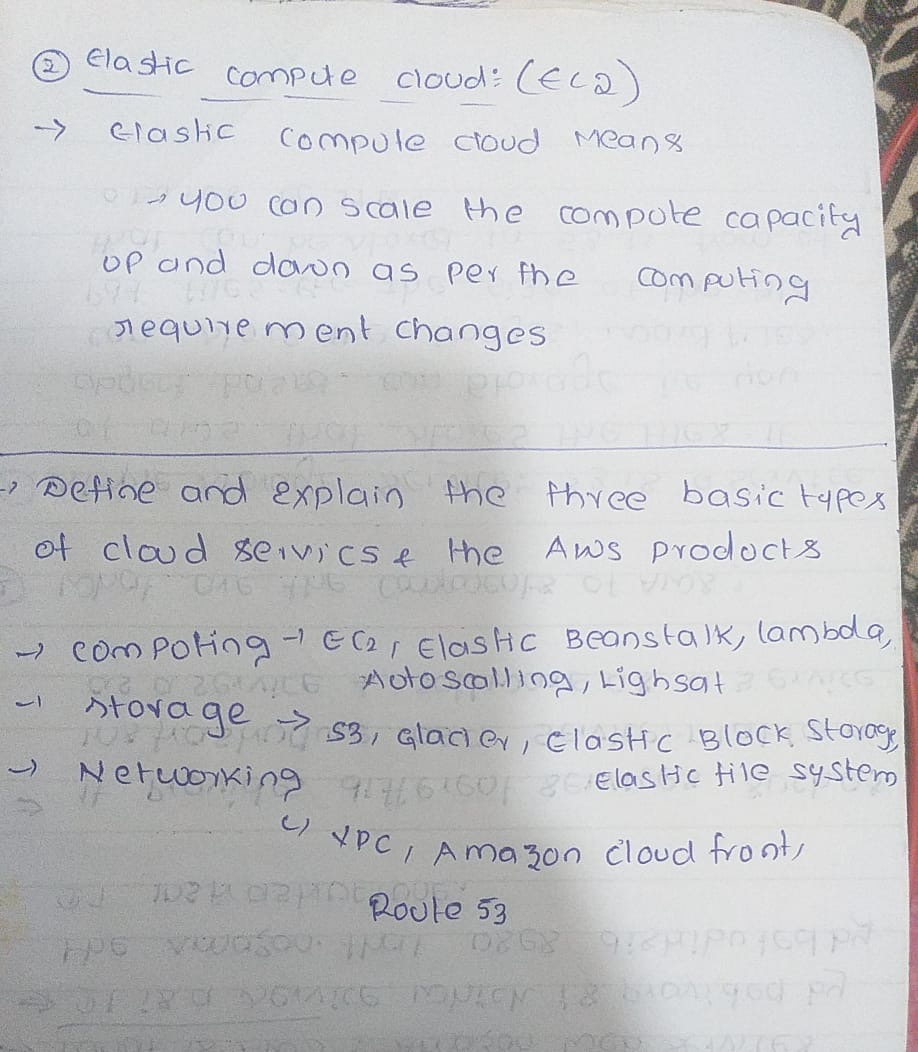 ② Elastic compute cloud: (EC2)
→ Elastic compute cloud Means
→ you can scale the compute capacity
up and down as per the computing
requirement changes
→ Define and explain the three basic types
of cloud servics & the AWS products
→ computing → EC2, Elastic Beanstalk, lambda,
Autoscalling, Lighsat
→ storage → S3, Glacier, Elastic Block Storage,
→ Networking Elastic file system
↳ VPC, Amazon cloud front,
Route 53